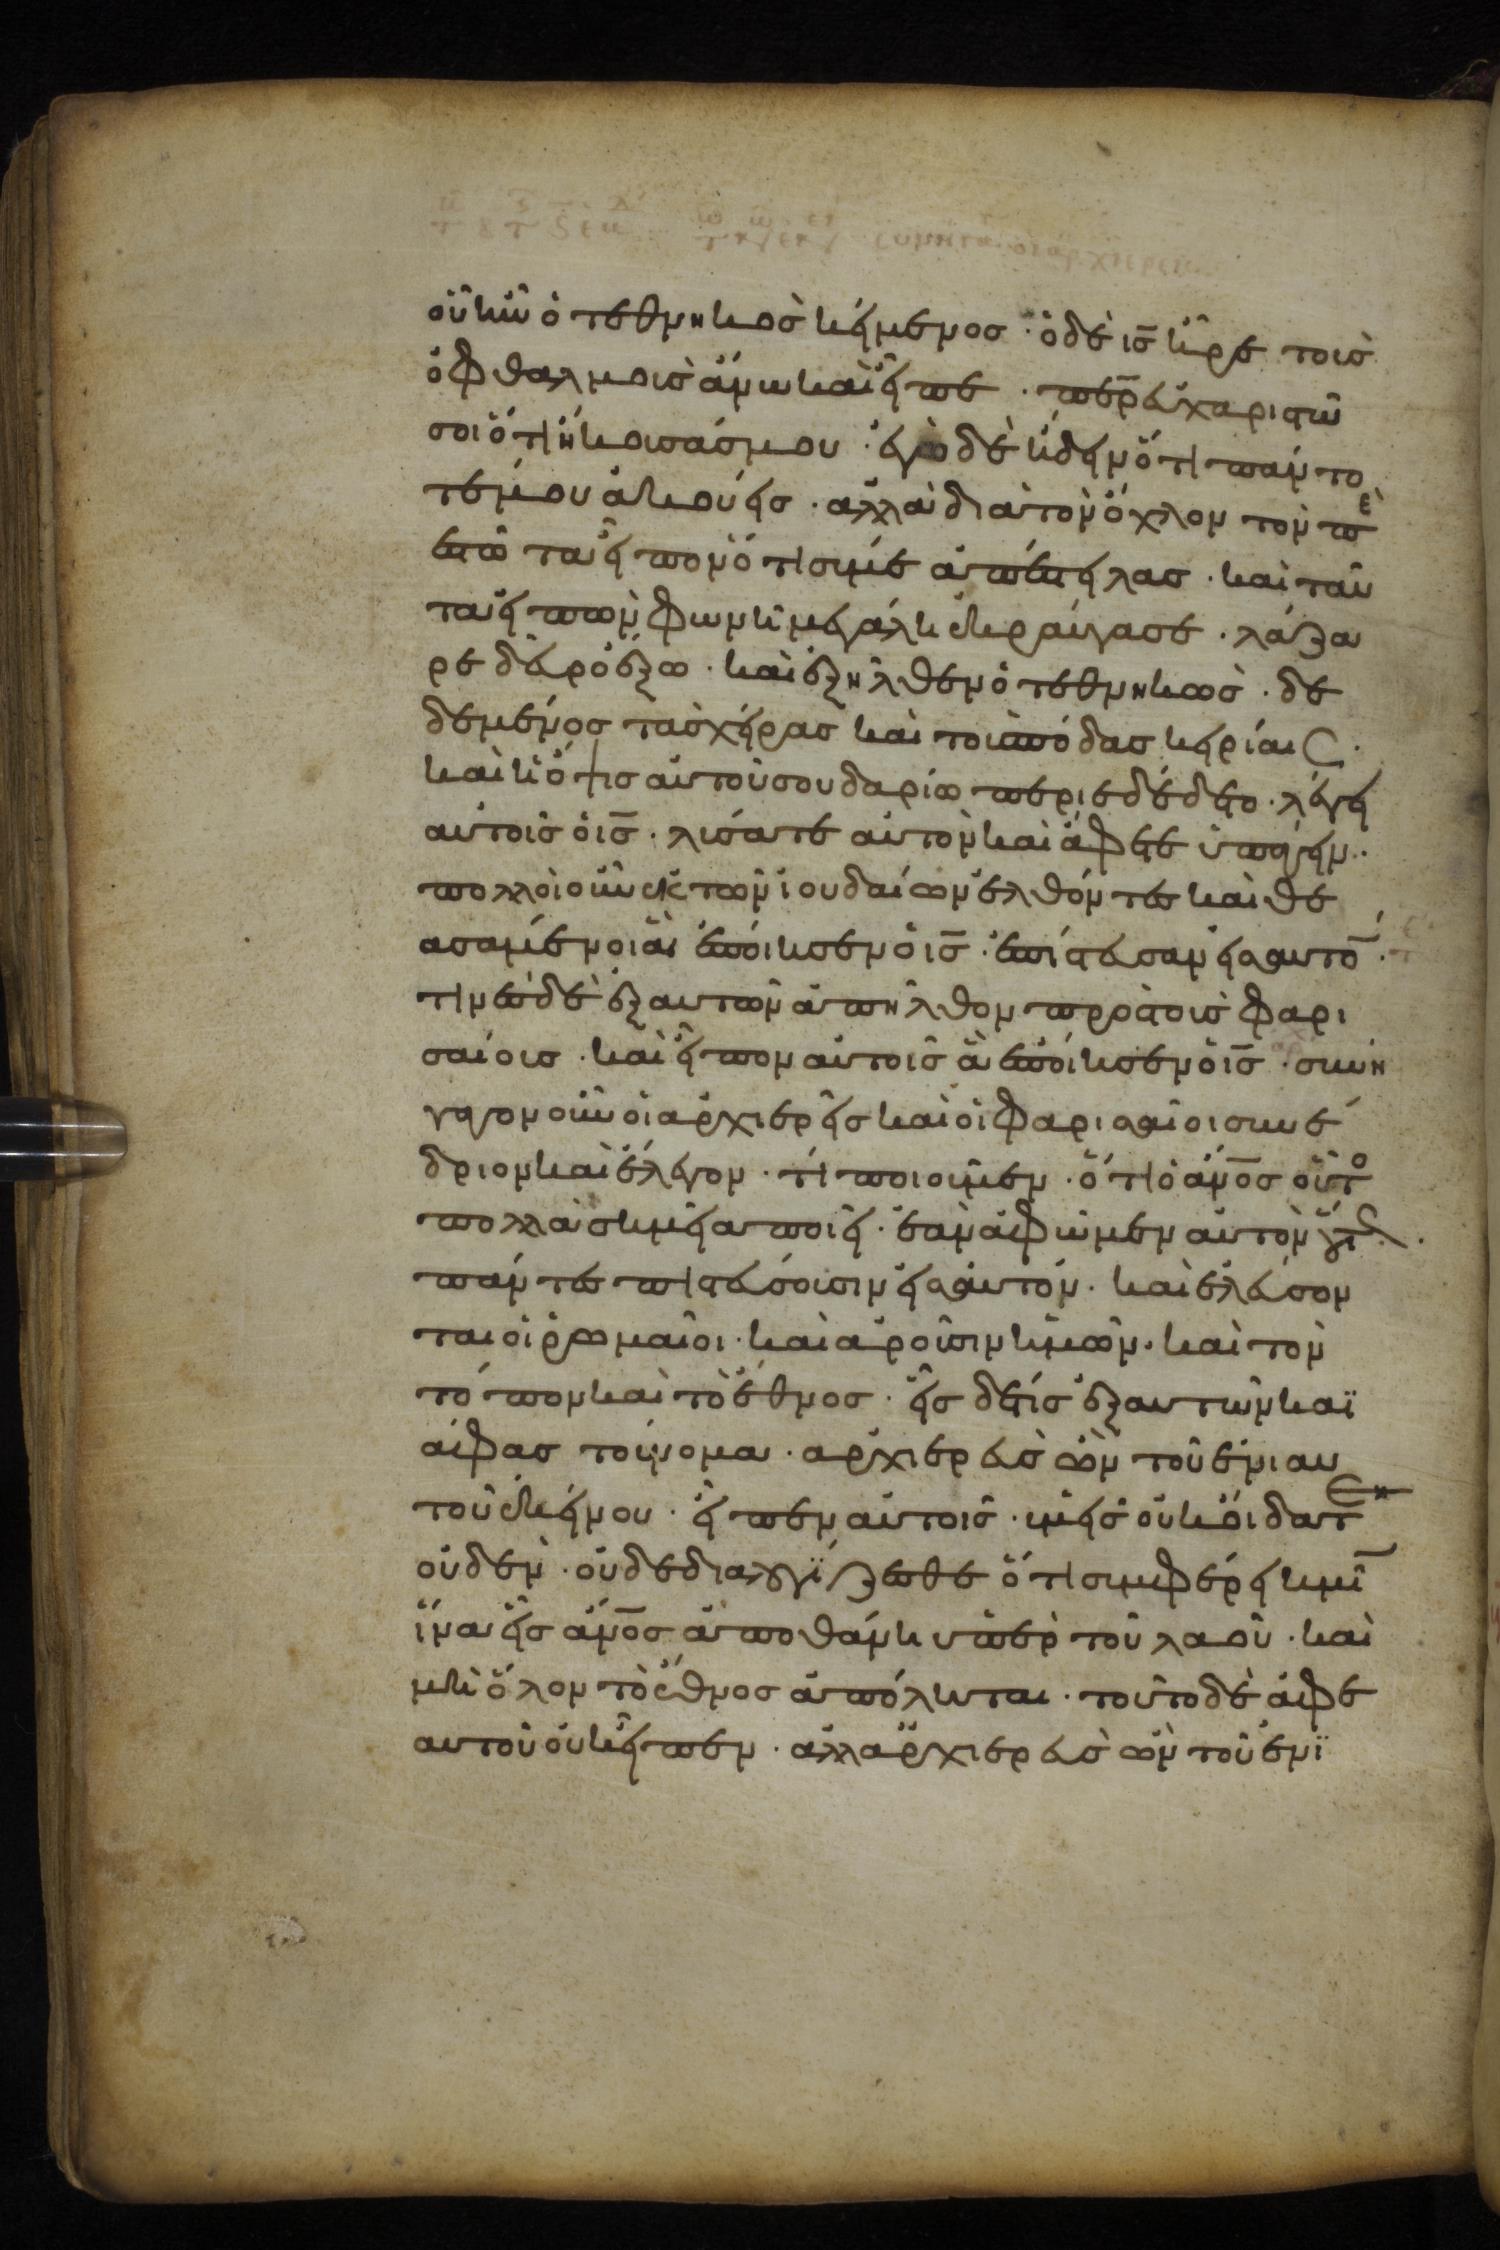 οὗ ἦν ὁ τεθνηκὸς κείμενος · ὁ δὲ ις̅ ἦρε τοῖς
ὀφθαλμοῖς ἄνω καὶ εἶπε · πε̅ρ εὐχαριστῶ
σοι ὅτι ἤκουσάς μου · ἐγὼ δὲ ἤδειν ὅτι πάντο
τέ μου ἀκούεις · ἀλλὰ διὰ τὸν ὄχλον τὸν πε
ριεστῶτα εἶπον ὅτι σύ με ἀπέστειλας · καὶ ταῦ
τα εἰπὼν φωνῇ μεγάλη ἐκραύγασε · λάζα
ρε δεῦρο ἔξω · καὶ ἐξῆλθεν ὁ τεθνηκὼς · δε
δεμένος τὰς χεῖρας καὶ τοὺς πόδας κειρίαις ·
καὶ ἡ ὄψις αὐτοῦ σουδαρίω περιεδέδετο · λέγει
αὐτοῖς ὁ ις̅ · λύσατε αὐτὸν καὶ ἄφετε ὑπάγειν ·
πολλοὶ οὖν ἐκ τῶν ἰουδαίων ἐλθόντες καὶ θε
ασαμένοι ἃ ἐποίησεν ὁ ις̅ · ἐπίστευσαν εἰς αυτο̅ ·
τινὲς δὲ ἐξ αυτῶν ἀπῆλθον πρὸς τοὺς φαρι
σαίους · καὶ εἶπον αὐτοῖς ἃ ἐποίησεν ὁ ις̅ · συνή
γαγον οὖν οἱ αρχιερεῖς καὶ οἱ φαρισαῖοι συνέ
δριον καὶ ἔλεγον · τί ποιοῦμεν · ὅτι ὁ ἄν̅ος οὗτο
πολλὰ σημεῖα ποιεῖ · ἐὰν ἀφῶμεν αὐτὸν οὕτ ·
πάντες πιστεύσουσιν εἰς αὐτόν · καὶ ἐλεύσον
ται οἱ ῥωμαῖοι · καὶ ἀροῦσιν ἡμῶν · καὶ τὸν
τόπον καὶ τὸ ἔθνος · εἷς δέ τίς ἐξ αυτῶν καϊ
άφας τοὔνομα · αρχιερεὺς ὢν τοῦ ἐνιαυ
τοῦ ἐκείνου · εἶπεν αὐτοῖς · ὑμεῖς οὐκ οἴδατε
οὐδὲν · οὐδὲ διαλογίζεσθε ὅτι συμφέρει ἡμῖ̅
ἵνα εἷς ἄν̅ος ἀποθάνη ὑπὲρ τοῦ λαοῦ · καὶ
μὴ ὅλον τὸ ἔθνος ἀπόληται · τοῦτο δὲ ἀφ ε
αυτοῦ οὐκ εἶπεν · ἀλλ αρχιερεὺς ὢν τοῦ ἐνϊ